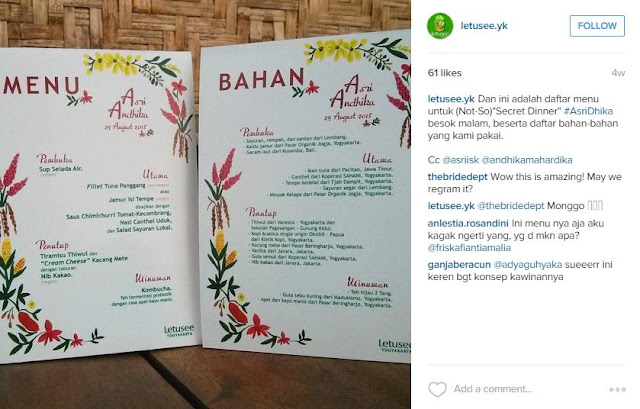 MENU
Asri
Andhika
29 August 2015
Pembuka
Sup Selada Air.
Utama
Fillet Tuna Panggang
atau
Jamur Isi Tempe
disajikan dengan
Saus Chimichurri Tomat-Kecombrang,
Nasi Canthel Uduk,
dan Salad Sayuran Lokal.
Penutup
Tiramisu Thiwul dan
"Cream Cheese" Kacang Mete
dengan taburan
Nib Kakao.
Minuman
Kombucha.
Teh fermentasi probiotik
dengan rasa apel-kayu manis
Letusee
YOGYAKARTA
BAHAN
Asri
Andhika
29 August 2015
Pembuka
- Sayuran, rempah, dan santan dari Lembang.
- Kaldu jamur dari Pasar Organik Jogja, Yogyakarta.
- Garam laut dari Kusamba, Bali.
Utama
- Ikan tuna dari Pacitan, Jawa Timur.
- Canthel dari Koperasi SAHANI, Yogyakarta.
- Tempe kedelai dari Tjah Dampit, Yogyakarta.
- Sayuran segar dari Lembang.
- Minyak Kelapa dari Pasar Organik Jogja, Yogyakarta.
Penutup
- Thiwul dari Yomesta - Yogyakarta dan
Sekolah Pagesangan - Gunung Kidul.
- Kopi Arabica single origin Okbibil - Papua
dari Klinik Kopi, Yogyakarta.
- Kacang mete dari Pasar Beringharjo, Yogyakarta.
- Vanilla dari Javara, Jakarta.
- Gula semut dari Koperasi SAHANI, Yogyakarta.
- Nib kakao dari Javara, Jakarta.
Minuman
- Teh hijau 2 Tang.
- Gula tebu kuning dari Madukismo, Yogyakarta.
- Apel dan kayu manis dari Pasar Beringharjo, Yogyakarta.
Letusee
YOGYAKARTA
letusee
letusee.yk
FOLLOW
61 likes
4w
letusee.yk Dan ini adalah daftar menu
untuk (Not-So)"Secret Dinner" #AsriDhika
besok malam, beserta daftar bahan-bahan
yang kami pakai.
Cc @asriisk @andhikamahardika
thebridedept Wow this is amazing! May we
regram it?
letusee.yk @thebridedept Monggo
anlestia.rosandini Ini menu nya aja aku
kagak ngerti yang, yg d mkn apa?
@friskafiantiamalia
ganjaberacun @adyaguhyaka sueeerr ini
keren bgt konsep kawinannya
Add a comment...